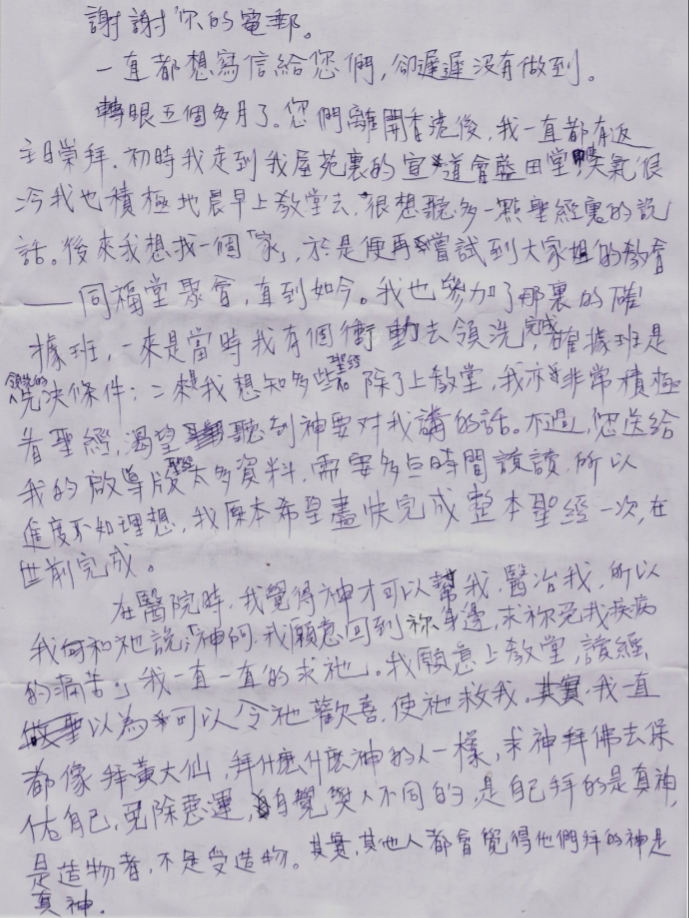 謝謝你的電郵。
一直都想寫信給您們，卻遲遲沒有做到。
轉眼五個多月了。您們離開香港後，我一直都有返
主日崇拜．初時我走到我屋苑裏的宣道會藍田堂，天氣很
冷我也積極地晨早上教堂去，很想聽多一點聖經裏的說
話。後來我想找一個「家」，於是便再嘗試到大家姐的教會
——同福堂聚會，直到如今。我也參加了那裏的確
據班，一來是當時我有個衝動去領洗，完成確據班是
領洗的先決條件；二來是我想知多些聖經。除了上教堂，我亦非常積極
看聖經，渴望聽到神要對我講的話。不過，您送給
我的啟導版聖經太多資料，需要多點時間該讀，所以
進度不如理想，我原本希望盡快完成整本聖經一次，在
世前完成。
在醫院時，我覺得神才可以幫我，醫治我，所以
我向和祂說：「神阿，我願意回到祢身邊，求祢免我疾病
的痛苦」我一直一直的求祂。我願意上教堂，讀經
以為可以令祂歡喜，使祂救我。其實，我一直
都像拜黃大仙，拜什麼什麼神的人一樣，求神拜佛去保
佑自己，免除惡運，自覺與人不同的，是自己拜的是真神，
是造物者，不是受造物。其實，其他人都會覺得他們拜的神是
真神．